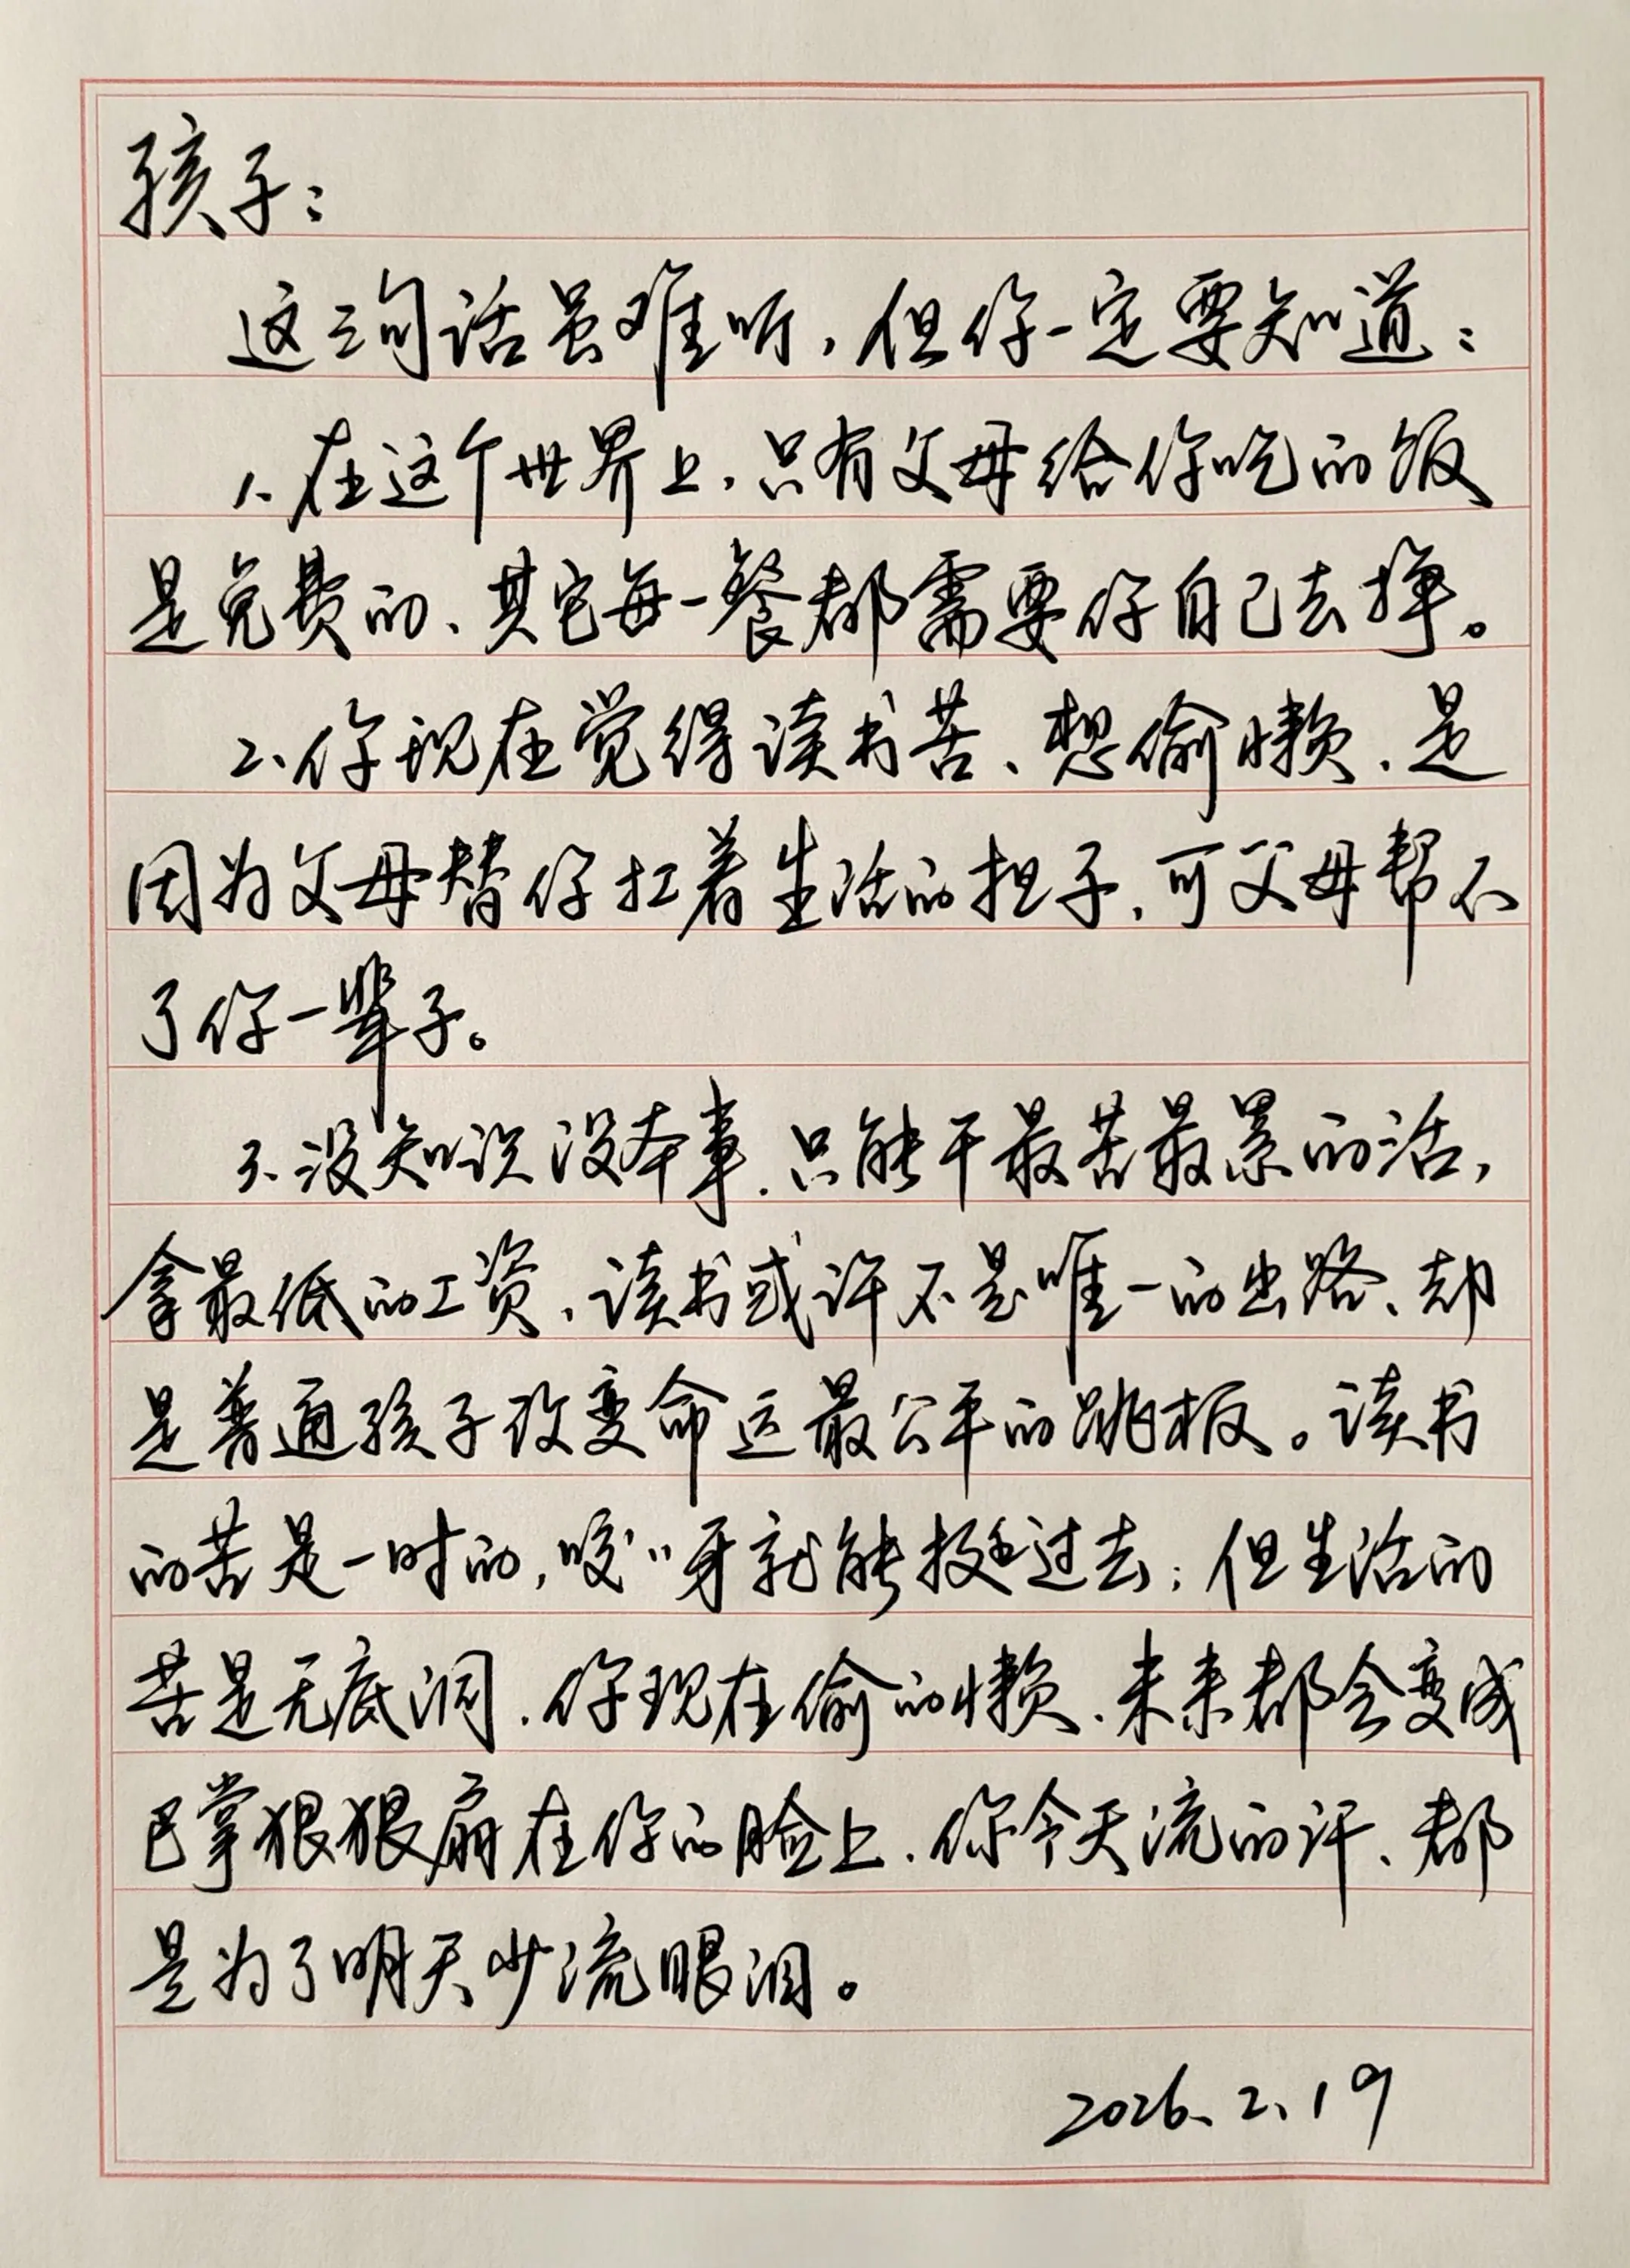 孩子：
这三句话虽难听，但你一定要知道：
1、在这个世界上，只有父母给你吃的饭
是免费的、其它每一餐都需要你自己去挣。
2、你现在觉得读书苦、想偷懒、是
因为父母替你扛着生活的担子，可父母帮不
了你一辈子。
3、没知识没本事，只能干最苦最累的活，
拿最低的工资、读书或许不是唯一的出路、却
是普通孩子改变命运最公平的跳板。读书
的苦是一时的，咬咬牙就能挺过去；但生活的
苦是无底洞、你现在偷的懒、未来都会变成
巴掌狠狠扇在你的脸上、你今天流的汗、都
是为了明天少流眼泪。
2026、2、19